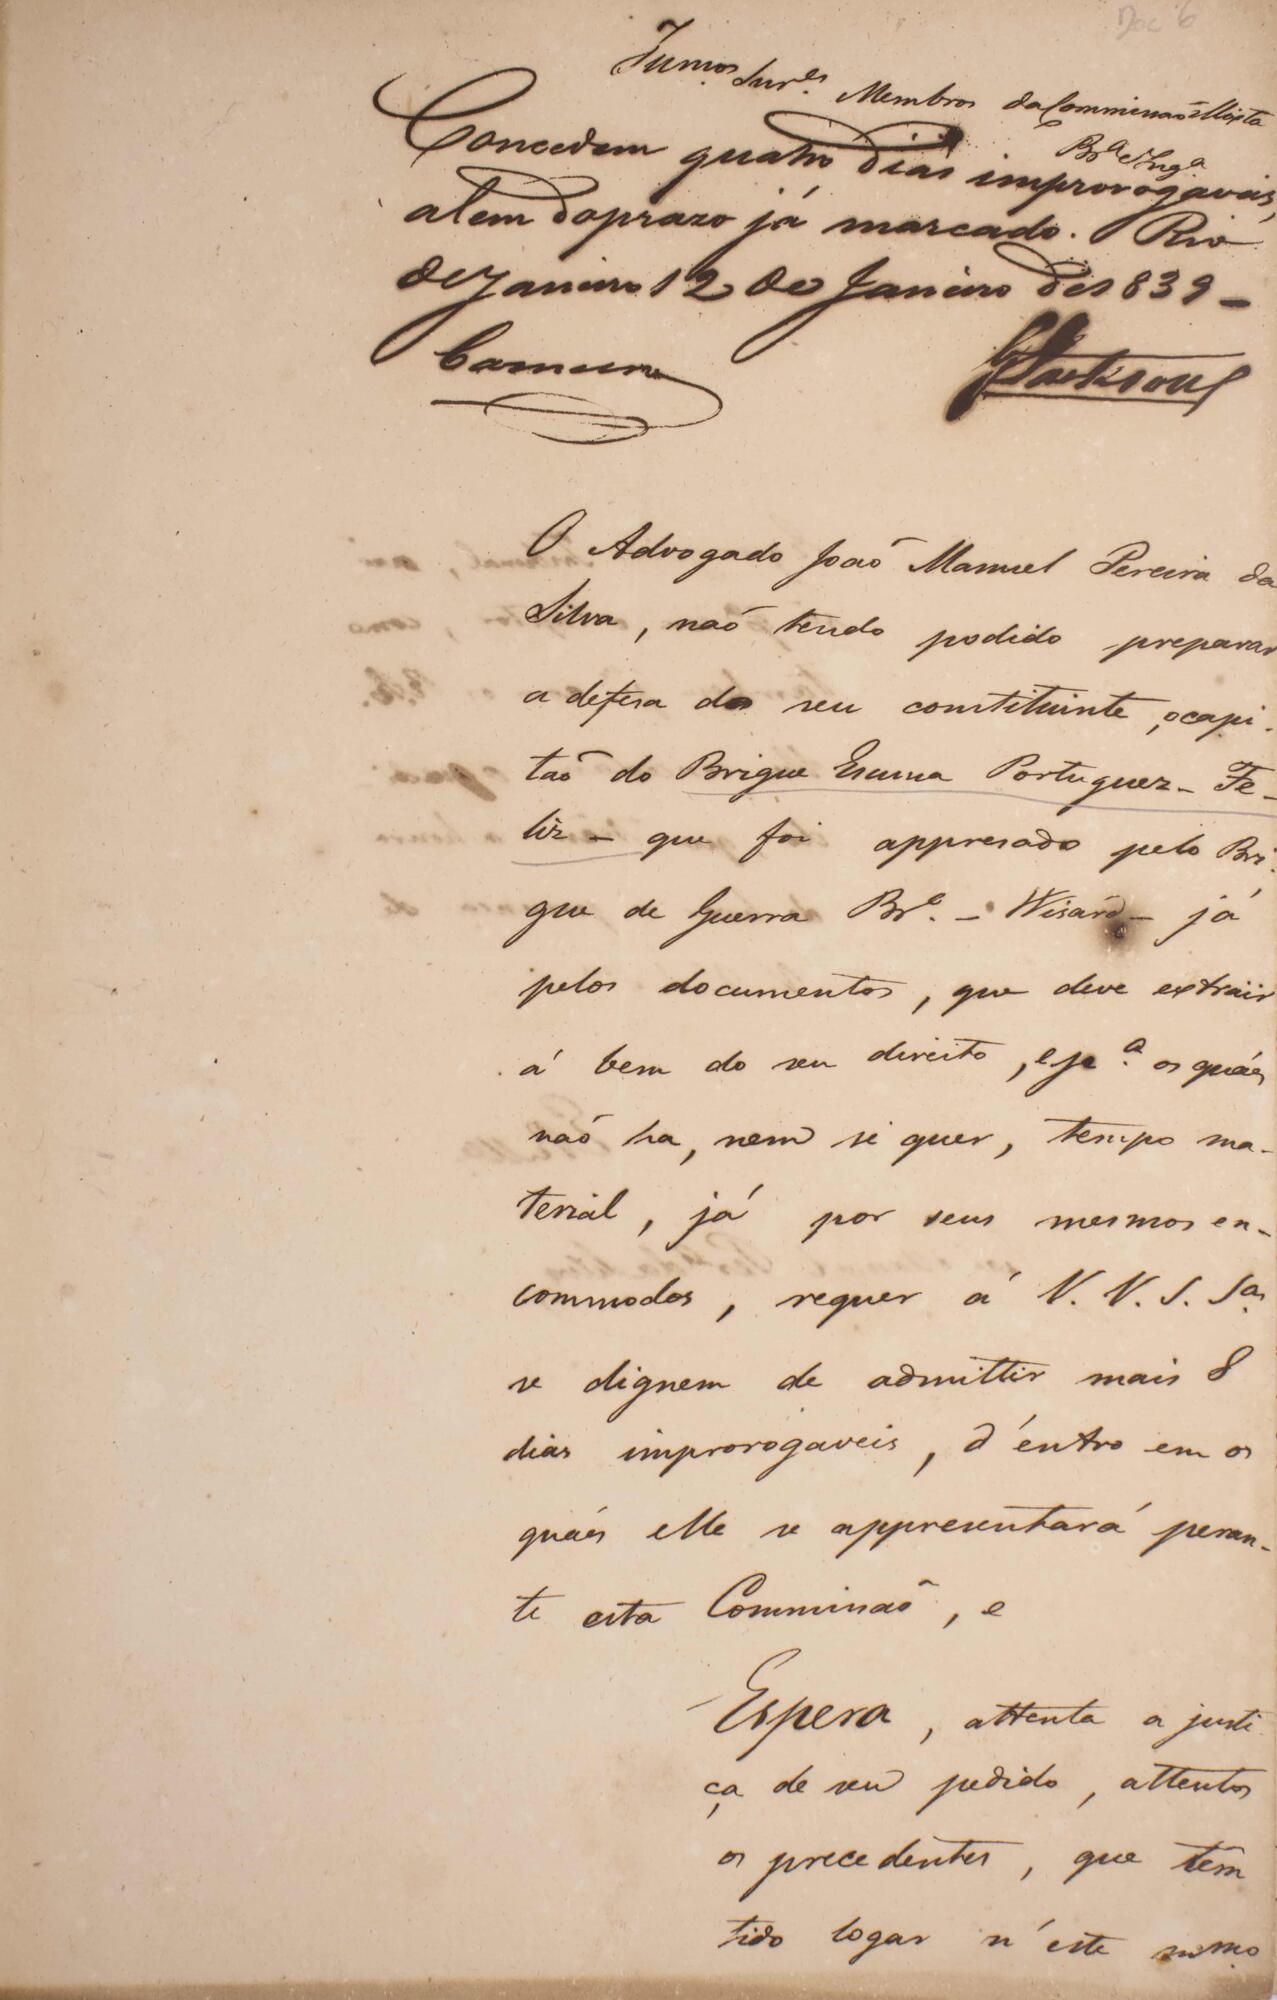 Doc 6
Snres Membros da Commissaõ Mixta
Bra e Inga
Concedem quatro dias improrogaveis,
alem do prazo já marcado. Rio
de Janeiro 12 de Janeiro de 1839 —
O Advogado Joaõ Manuel Pereira da
Silva, naõ tendo podido preparar
a defesa do seu constituinte, o capi-
taõ do Brigue Escuna Portuguez — Fe-
liz — que foi appresado pelo Bri-
gue de Guerra Bre. — Wisard — já
pelos documentos, que deve extrair
á bem do seu direito, e pa. os quáes
naõ ha, nem se quer, tempo ma-
terial, já por seus mesmos en-
commodos, requer á V. V. S. Sas
se dignem de admittir mais 8
dias improrogaveis, d'éntro em os
quáes elle se appresentará peran-
te esta Commissaõ, e
Espera, attenta a justi-
ça de seu pedido, attentos
os precedentes, que têm
tido logar n'este mesmo